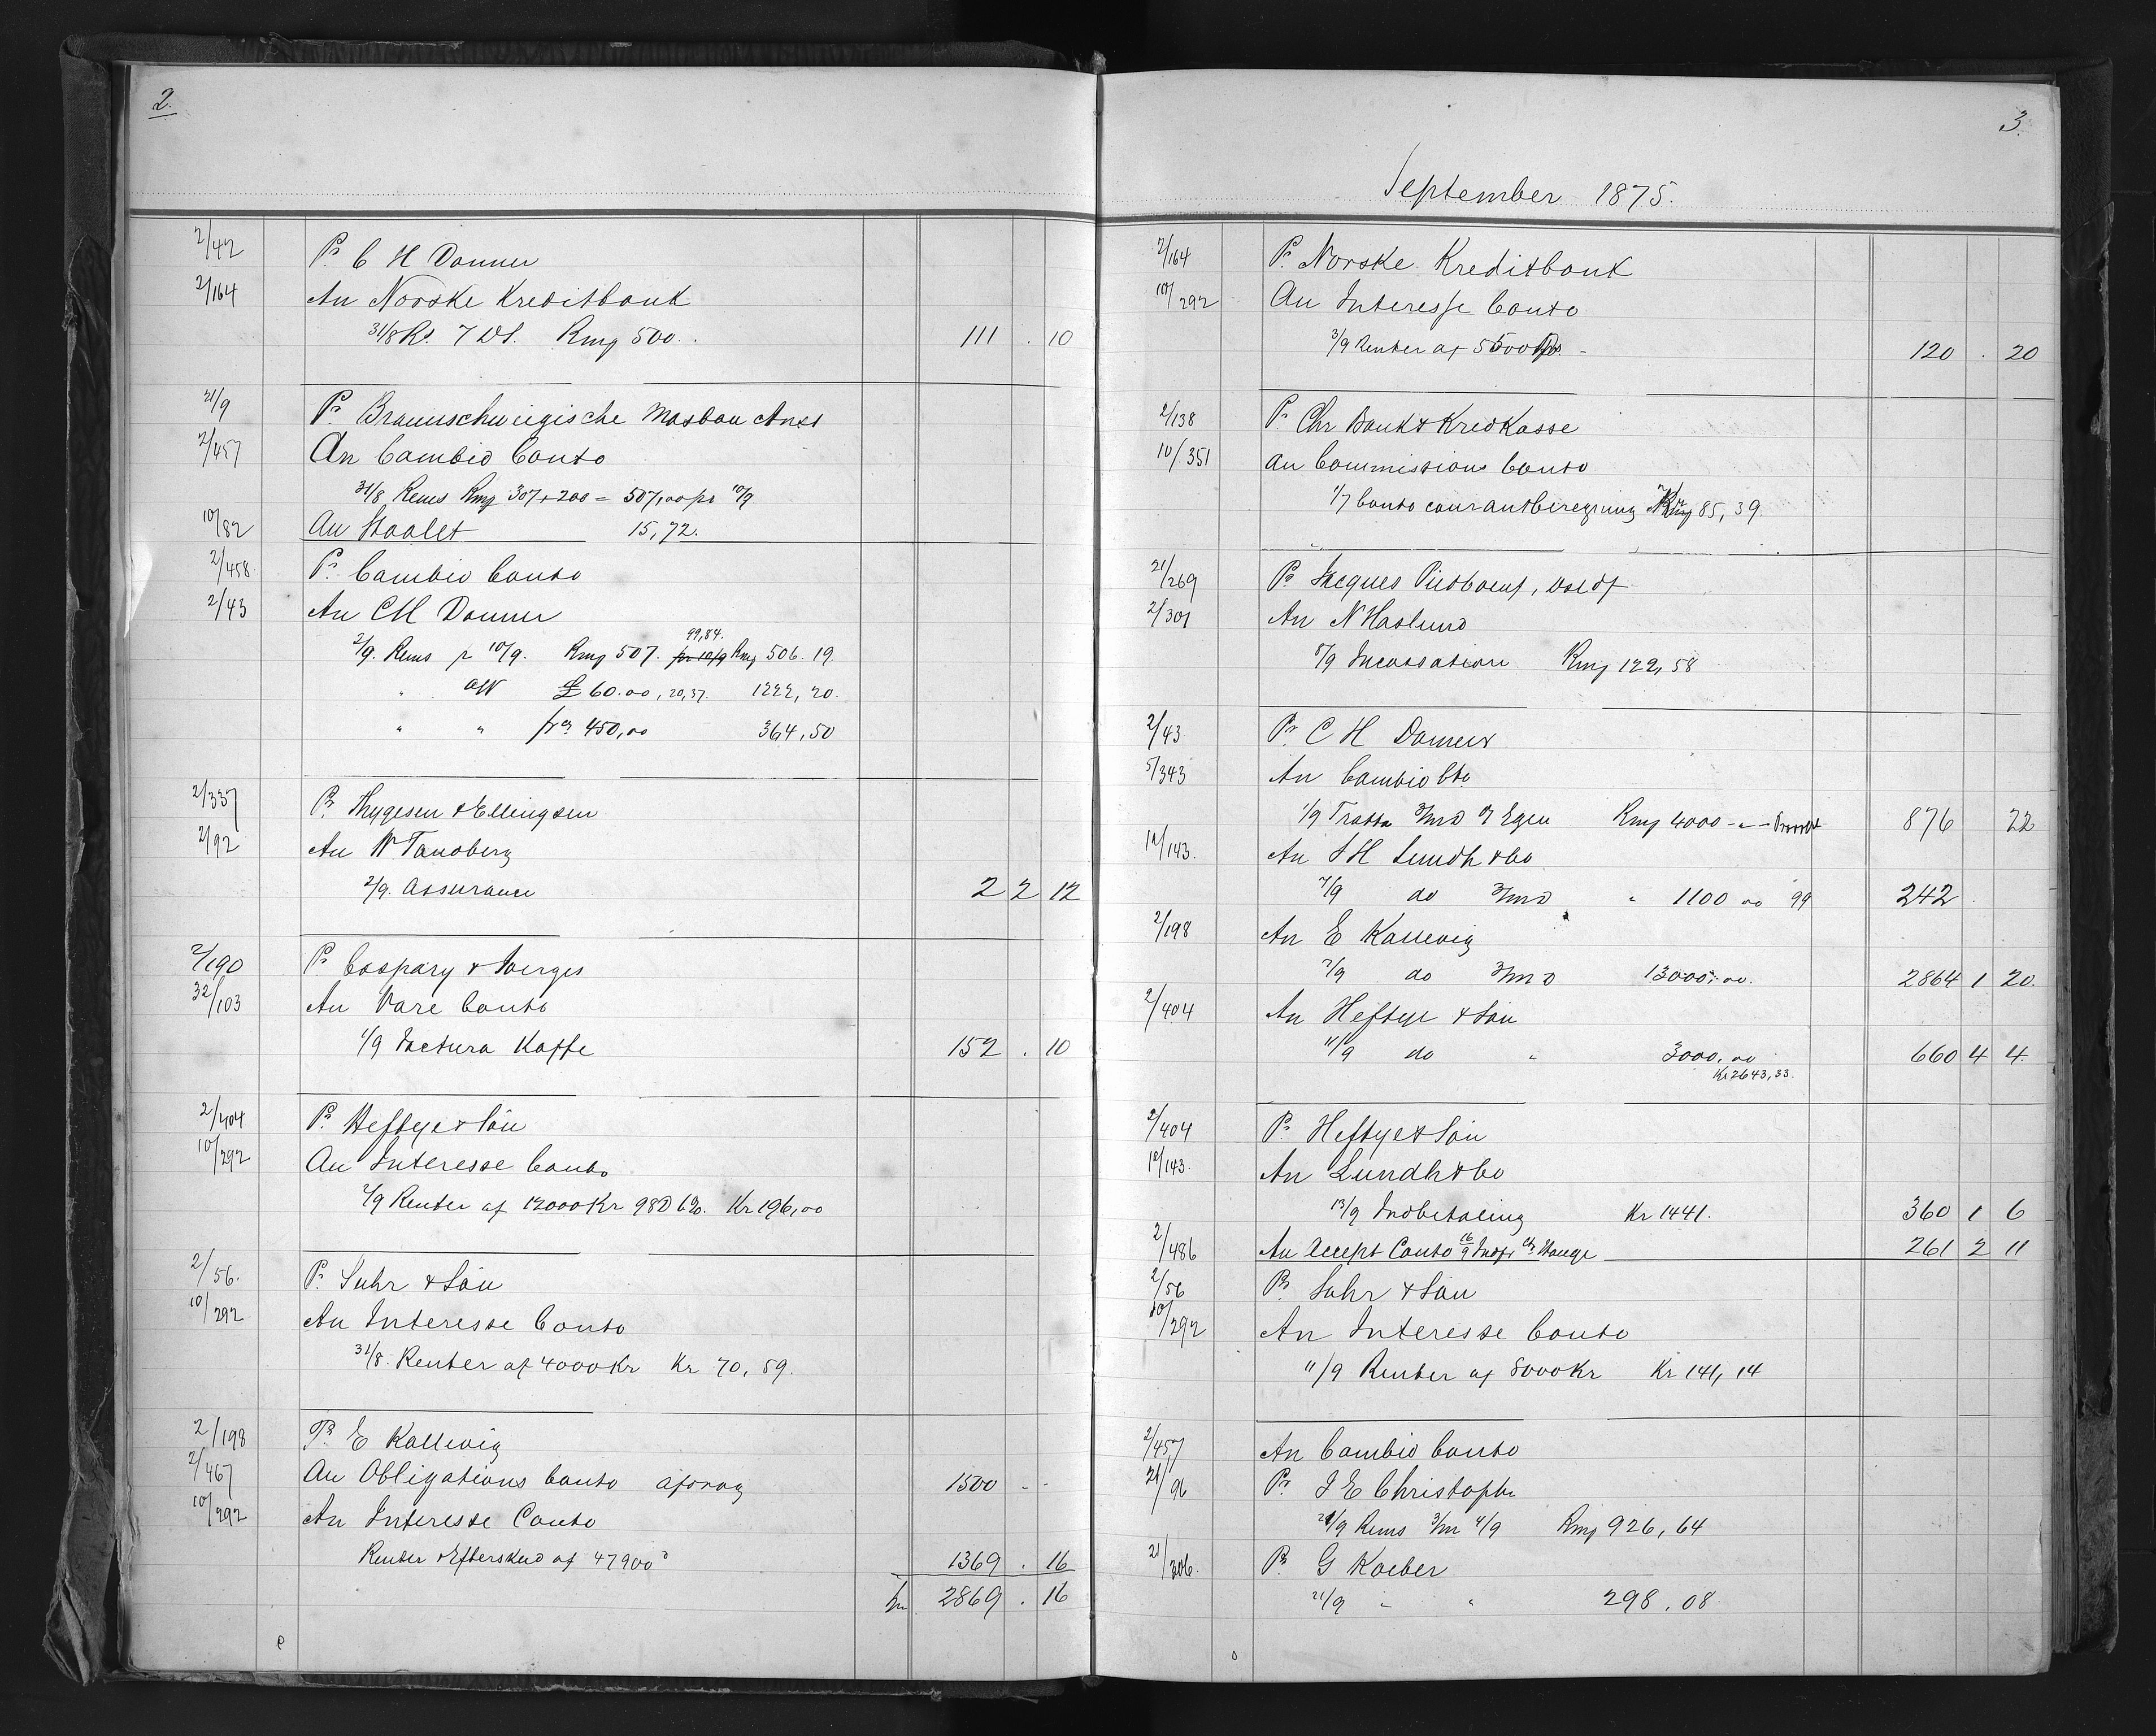 2.
2/42 Pr C H Donner
2/164 An Norske Kreditbank
31/8 Rs. 7 Dt. Rmg 500. 111 . 10
21/9 Pr Braunschweigische Masbau Anst
2/457 An Cambio Conto
31/8 Rems Rmg 307 + 200 = 507,00 pr 10/9
10/82 An Staalet 15,72.
2/458 Pr Cambio Conto
2/43 An CH Donner
99,84.
2/9. Rems pr 10/9. Rmg 507. pr 10/9 Rmg 506. 19.
" £ 60.00, 20,37. 1222, 20.
" " frcs 450,00 364,50
2/337 Pr Thygesen & Ellingsen
2/92 An W Tandberg
2/9. Assurance 2 2 12
2/190 Pr Caspary & Joerges
32/103 An Vare Conto
1/9 Factura Kaffe 152 . 10
2/404 Pr Heftye & Sön
10/292 An Interesse Conto
2/9 Renter af 12000 Kr 98D 6%. Kr 196,00
2/56. Pr Suhr & Sön
10/292 An Interesse Conto
31/8. Renter af 4000 Kr Kr 70, 59.
2/198 Pr E Kallevig
2/467 An Obligations Conto afdrag 1500 - -
10/292 An Interesse Conto
Renter Efterskud af 47900 1369 . 16
2869 . 16
3.
September 1875.
2/164 Pr Norske Kreditbank
10/292 An Interesse Conto
3/9 Renter af 5500 120 . 20
2/138 Pr Chr Bank & KredKasse
10/351 An Commissions Conto
1/7 Conto courantberegning 85, 39.
21/269 Pr Jacques Piedboeuf, Dsldf
2/301 An N Haslund
8/9 Incassation Rmg 122, 58
2/43 Pr C H Donner
5/343 An Cambio Cto
1/9 Tratta 3/md Egen Rmg 4000 - " - 876 22
12/143. An J H Lundh & Co
7/9 do 3/md " 1100 00 99 242 .
2/198 An E Kallevig
7/9 do 3/md 13000,00. 2864 1 20.
2/404 An Heftye & Sön
11/9 do " 3000,00 660 4 4.
Kr 2643,33.
2/404 Pr Heftye & Sön
12/143. An Lundh & Co
13/9 Indbetaling Kr 1441. 360 1 6
2/486 An Accept Conto 16/9 Hauge 261 2 11
2/56 Pr Suhr & Sön
10/292 An Interesse Conto
11/9 Renter af 8000 Kr Kr 141, 14
2/457 An Cambio Conto
21/96 Pr J E Christoph
21/9 Rems 3/m 4/9 Rmg 926, 64
21/306. Pr G Koeber
21/9 " " 298.08